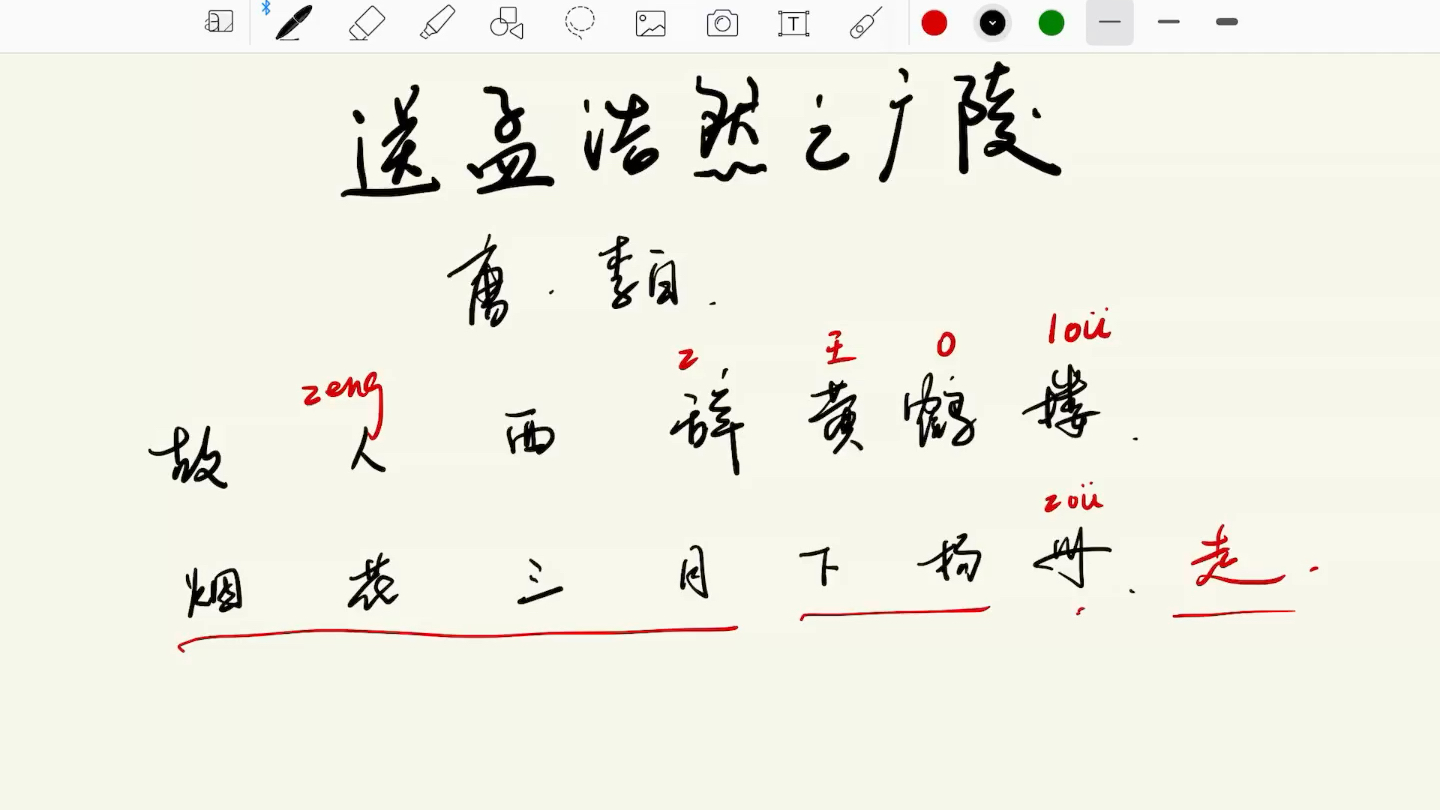 送孟浩然之广陵
唐·李白.
zeng z 王 o loü
故人西辞黄鹤楼.
zoü
烟花三月下扬州. 走.